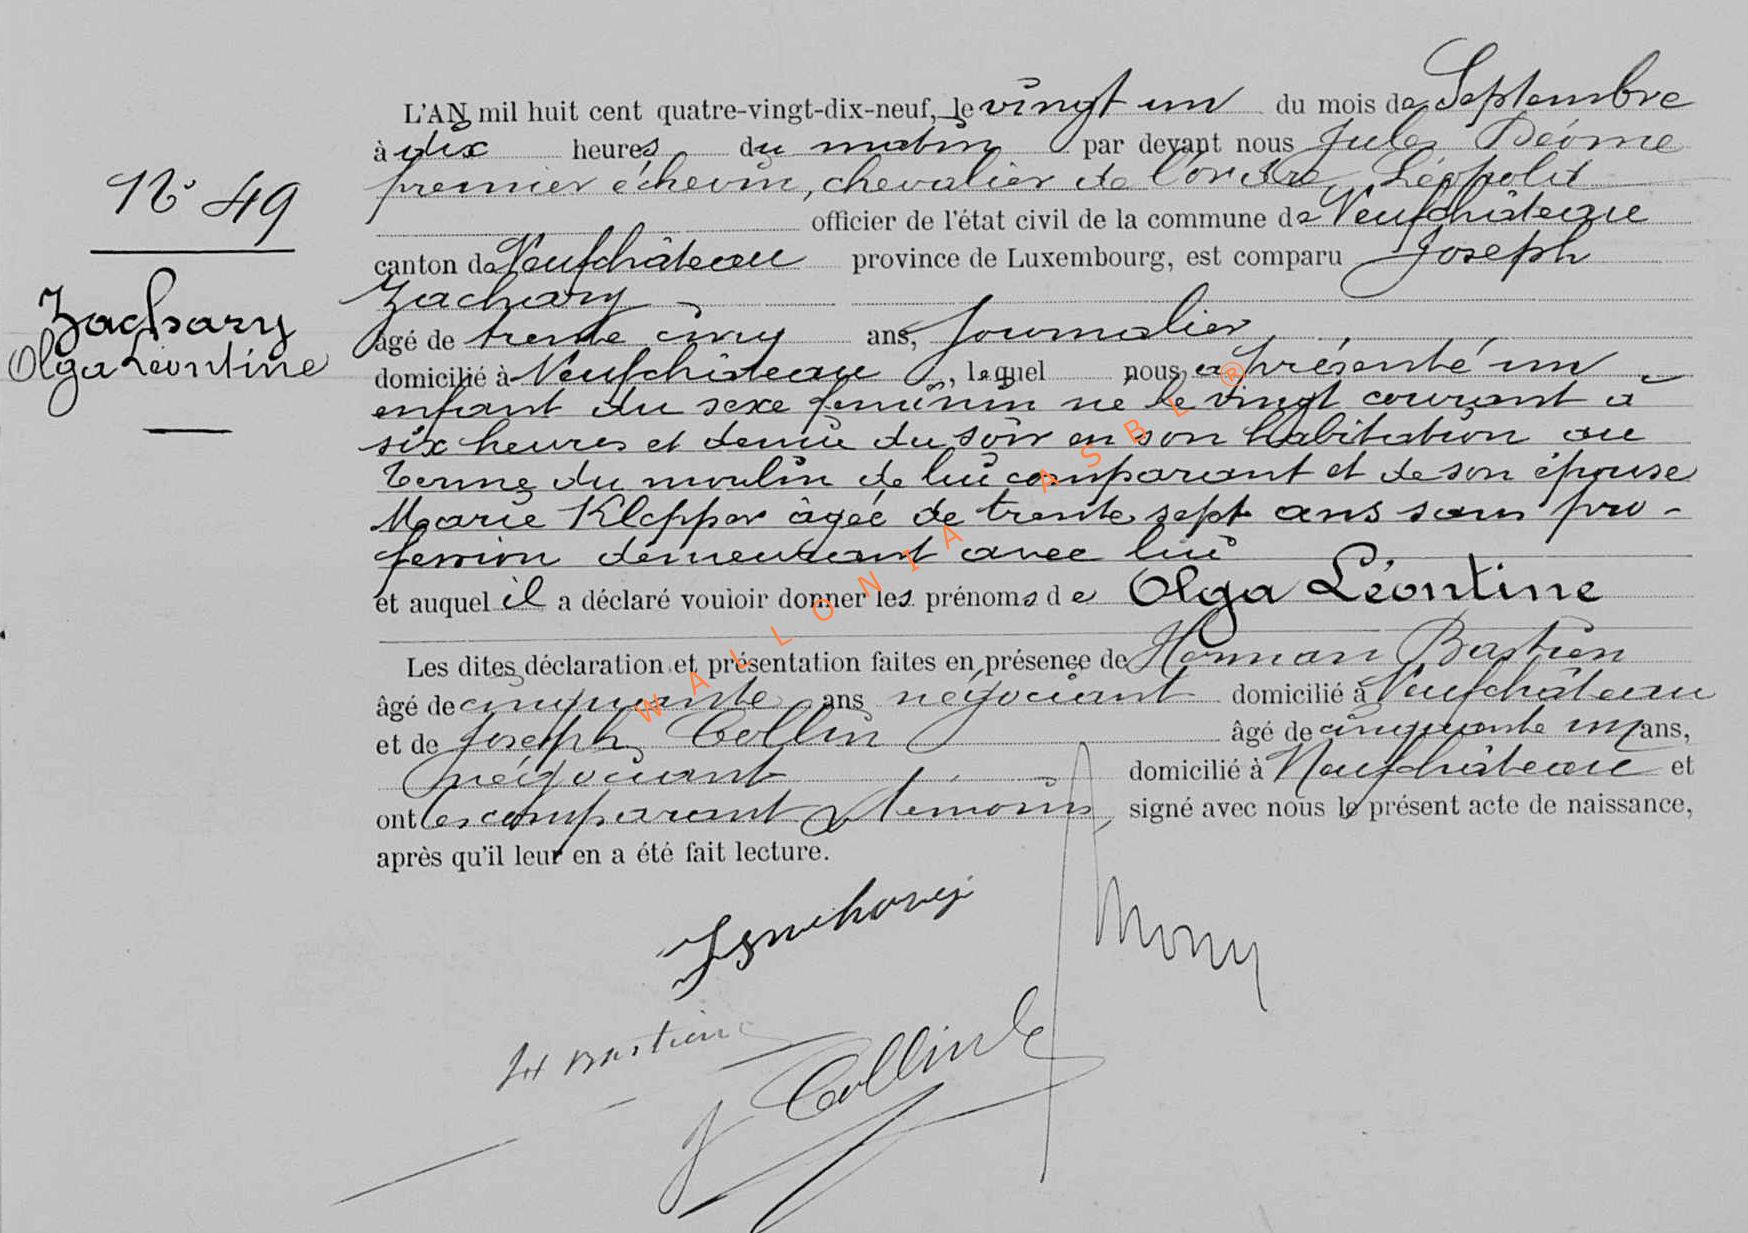 L'AN mil huit cent quatre-vingt-dix-neuf, le vingt un du mois de Septembre
à dix heures du matin par devant nous Jules
premier échevin, chevalier de l'ordre Léopold
officier de l'état civil de la commune de Neufchâteau
canton de Neufchâteau province de Luxembourg, est comparu Joseph
Zachary
âgé de trente cinq ans, Journalier
domicilié à Neufchâteau, lequel nous a présenté un
enfant du sexe feminin né le vingt courant à
six heures et demie du soir en son habitation au
Terme du moulin de lui comparant et de son épouse
Marie âgée de trente sept ans sans pro-
fession demeurant avec lui
et auquel il a déclaré vouloir donner les prénoms de Olga Léontine
Les dites déclaration et présentation faites en présence de Herman Bastien
âgé de cinquante ans négociant domicilié à Neufchâteau
et de Joseph Collin âgé de cinquante un ans,
négociant domicilié à Neufchâteau et
ont les comparant & temoins, signé avec nous le présent acte de naissance,
après qu'il leur en a été fait lecture.
N° 49
Zachary
Olga Léontine
Zachary
H Bastien
J Collin
WALLONIA ASBL ®